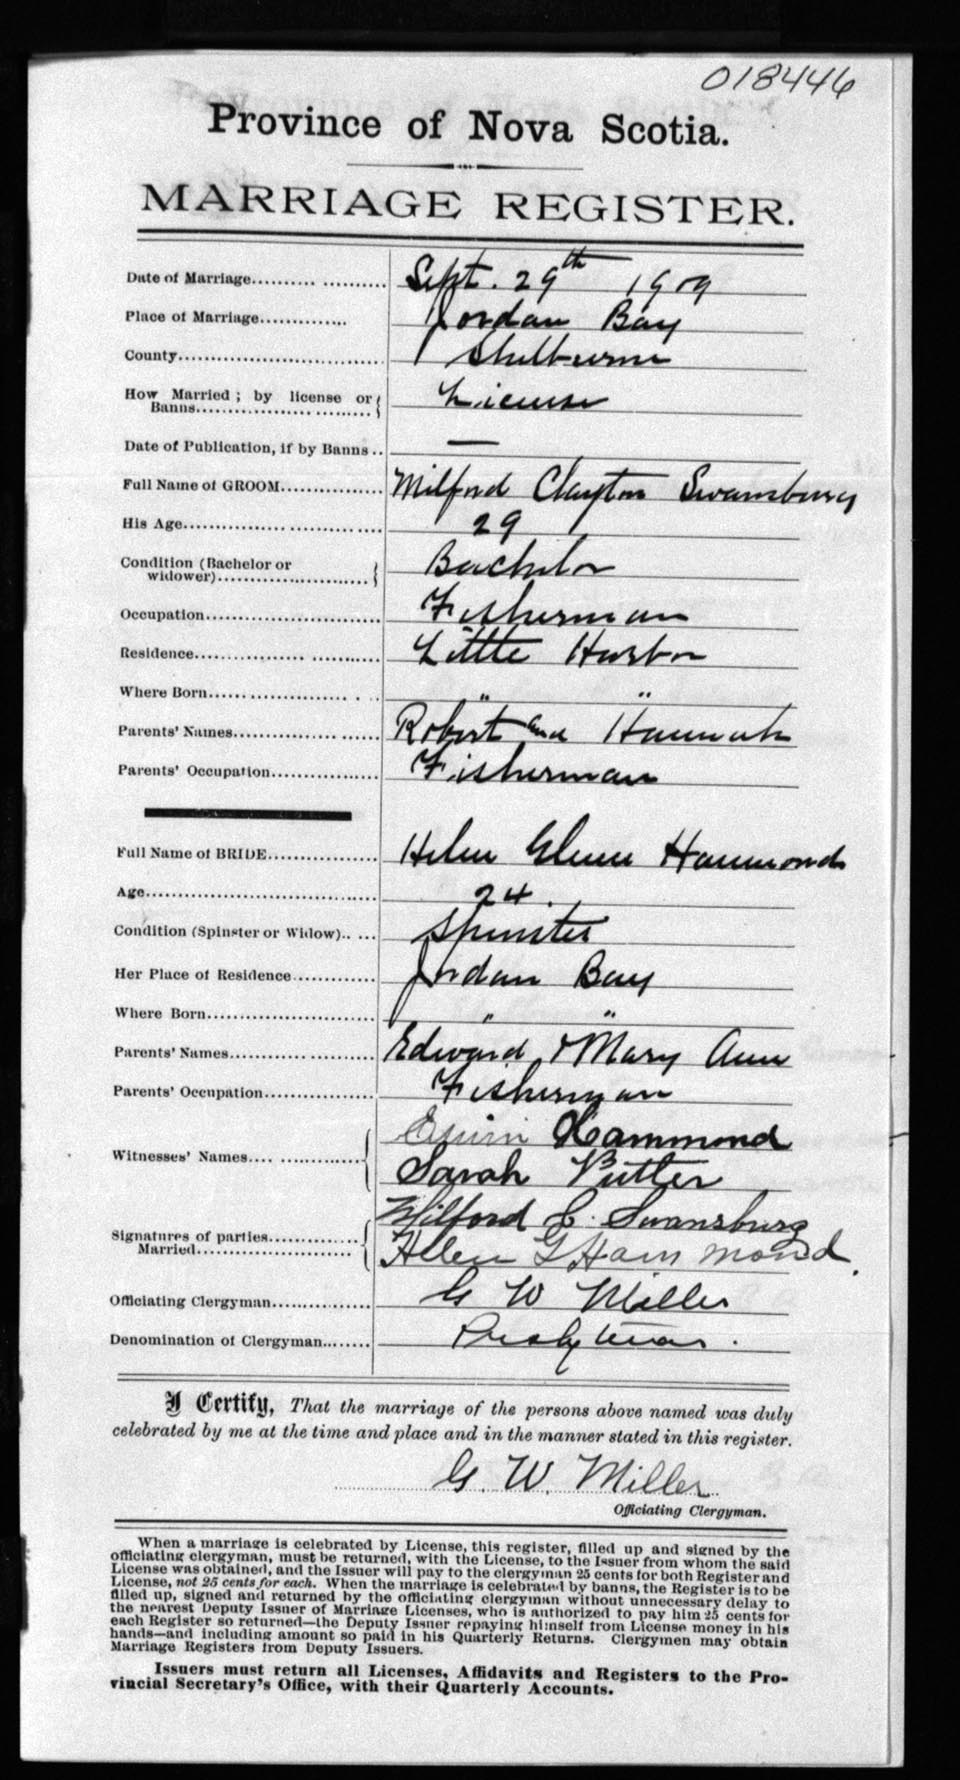 018446
Province of Nova Scotia.
MARRIAGE REGISTER.
Date of Marriage.................... Sept. 29th 1909
Place of Marriage............. Jordan Bay
County............................... Shelburne
How Married ; by license or
Banns........................ License
Date of Publication, if by Banns.. —
Full Name of GROOM............... Milford Clayton Swansburg
His Age.............................. 29
Condition (Bachelor or
widower)........................ Bachelor
Occupation........................... Fisherman
Residence........................... Little Harbor
Where Born........................ " "
Parents' Names..................... Robert and Hannah
Parents' Occupation................. Fisherman
Full Name of BRIDE................ Helen Hammond
Age................................... 24.
Condition (Spinster or Widow)..... Spinster
Her Place of Residence............ Jordan Bay
Where Born......................... " "
Parents' Names.................... Edward & Mary Ann
Parents' Occupation................ Fisherman
Witnesses' Names.................. Hammond
Sarah
Signatures of parties............. Milford C. Swansburg
Married........................ Helen G Hammond.
Officiating Clergyman............... G W Miller
Denomination of Clergyman....... Presbyterian.
I Certify, That the marriage of the persons above named was duly
celebrated by me at the time and place and in the manner stated in this register.
G. W. Miller
Officiating Clergyman.
When a marriage is celebrated by License, this register, filled up and signed by the
officiating clergyman, must be returned, with the License, to the Issuer from whom the said
License was obtained, and the Issuer will pay to the clergyman 25 cents for both Register and
License, not 25 cents for each. When the marriage is celebrated by banns, the Register is to be
filled up, signed and returned by the officiating clergyman without unnecessary delay to
the nearest Deputy Issuer of Marriage Licenses, who is authorized to pay him 25 cents for
each Register so returned—the Deputy Issuer repaying himself from License money in his
hands—and including amount so paid in his Quarterly Returns. Clergymen may obtain
Marriage Registers from Deputy Issuers.
Issuers must return all Licenses, Affidavits and Registers to the Pro-
vincial Secretary's Office, with their Quarterly Accounts.